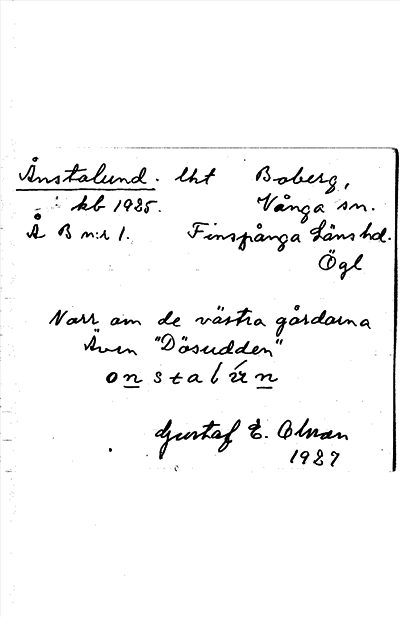 Ånstalund. lht Boberg,
: kb 1925. Vånga sn.
Å B n:r 1. Finspånga Läns hd.
Ögl
Norr om de västra gårdarna
Även "Dösudden"
Gustaf E. Olsson
1927